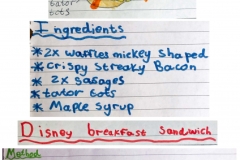 tator
tots
Ingredients
*2x waffles mickey shaped
*crispy streaky Bacon
*2x Sasages
*tator tots
*Maple syrup
Disney breakfast sandwich
Method